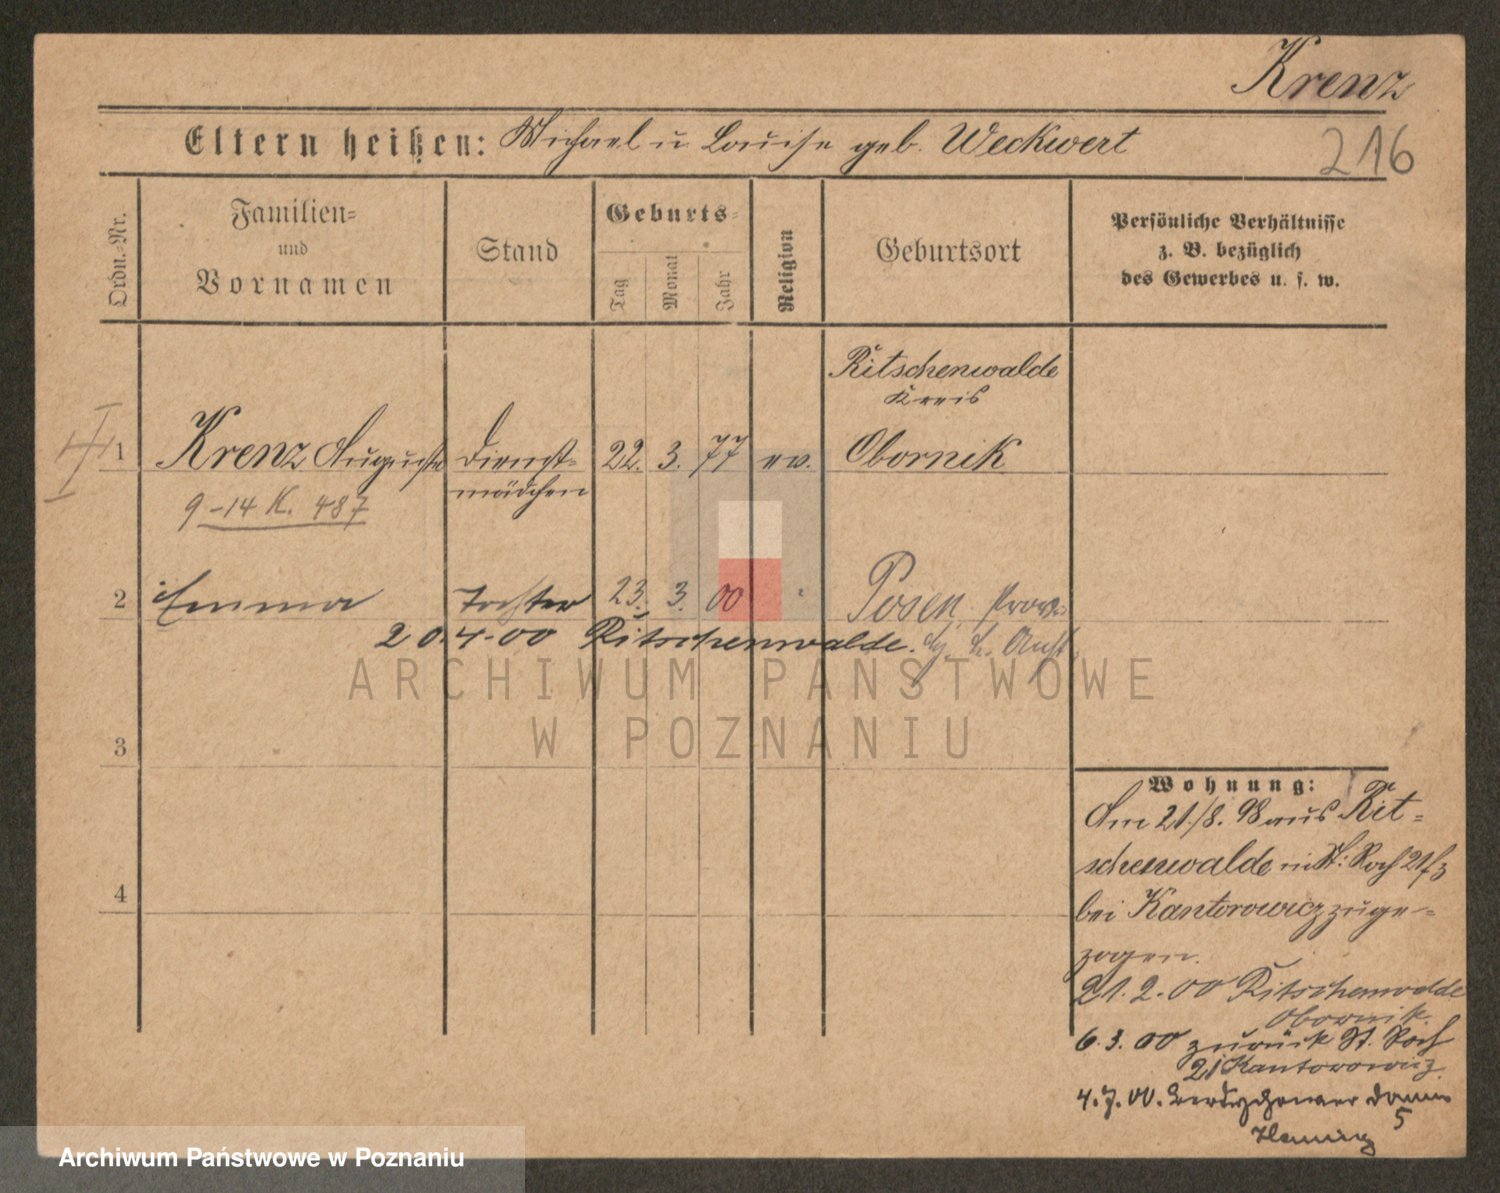 Krenz
216
Eltern heißen: Michael u Louise geb. Weckwert
Ordn.-Nr.
Familien-
und
Vornamen
Stand
Geburts-
Tag
Monat
Jahr
Religion
Geburtsort
Persönliche Verhältnisse
z. B. bezüglich
des Gewerbes u. s. w.
Ritschenwalde
Kreis
1 Krenz Auguste Dienst- 22. 3. 77 ev. Obornik
mädchen
9-14 K. 487
2 Emma Tochter 23. 3. 00 " Posen, Prov.
20.4.00 Ritschenwalde.
ARCHIWUM PAŃSTWOWE
W POZNANIU
3
Wohnung:
Am 21./8. 98 aus Rit-
schenwalde in St: Roch 21/3
4
bei Kantorowicz zuge-
zogen.
21.2.00 Ritschenwalde
Obornik.
6.3.00 zurück St. Roch
21 Kantorowicz.
4.7.00.
5
Archiwum Państwowe w Poznaniu